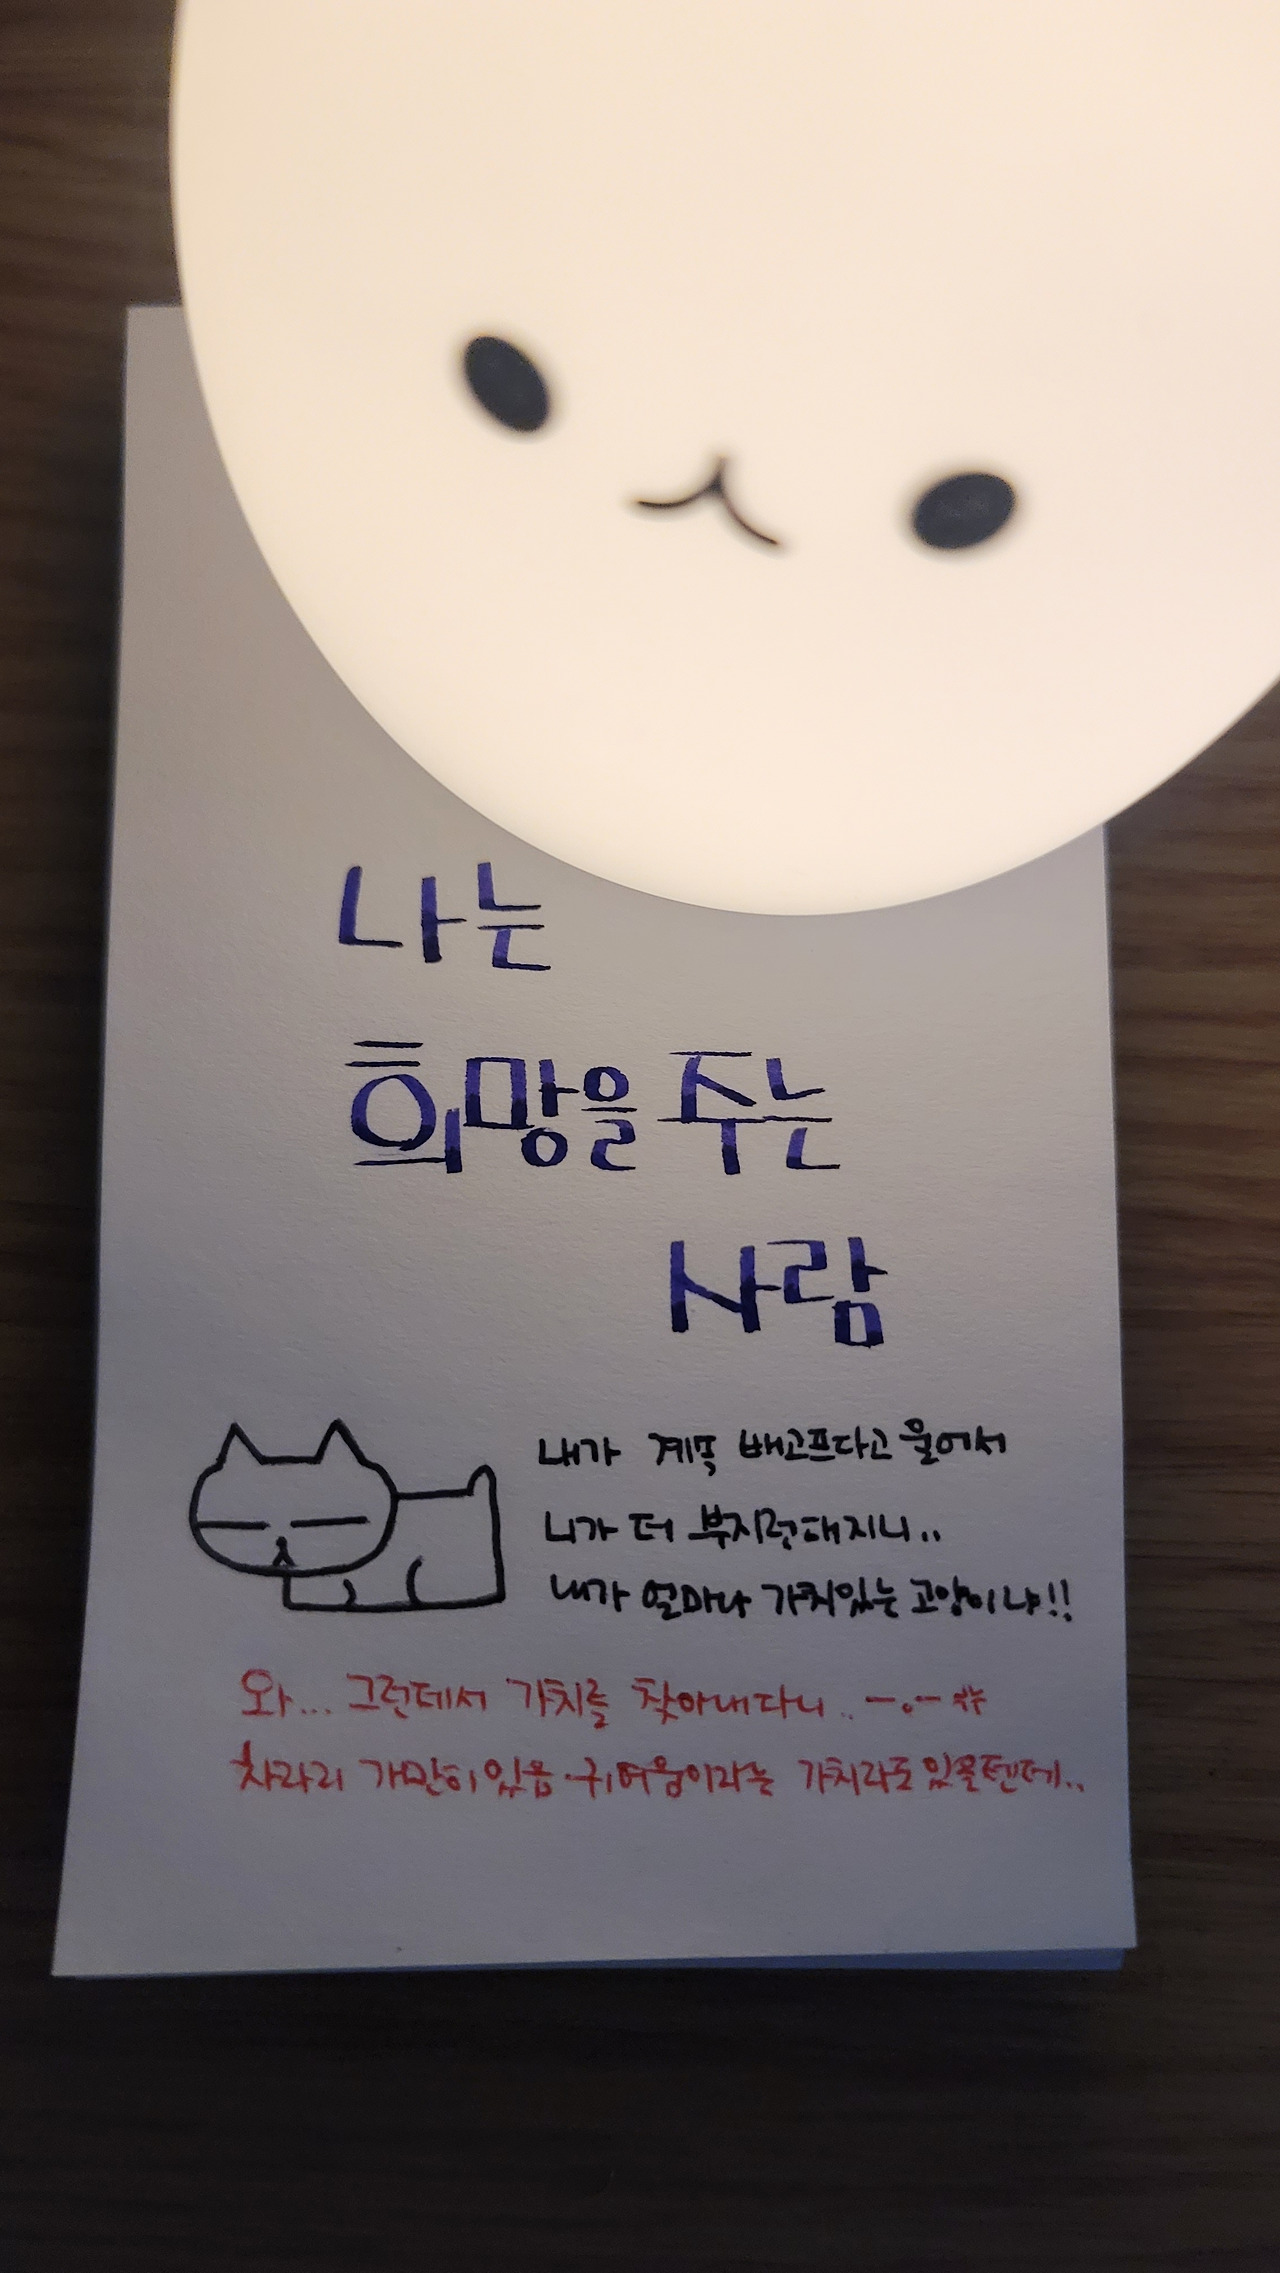 나는
희망을 주는
사람
내가 계속 배고프다고 울어서
니가 더 부지런해지니..
내가 얼마나 가치있는 고양이냐!!
와... 그런데서 가치를 찾아내다니.. -.-#
차라리 가만히 있음 귀여움이라는 가치라도 있을텐데..